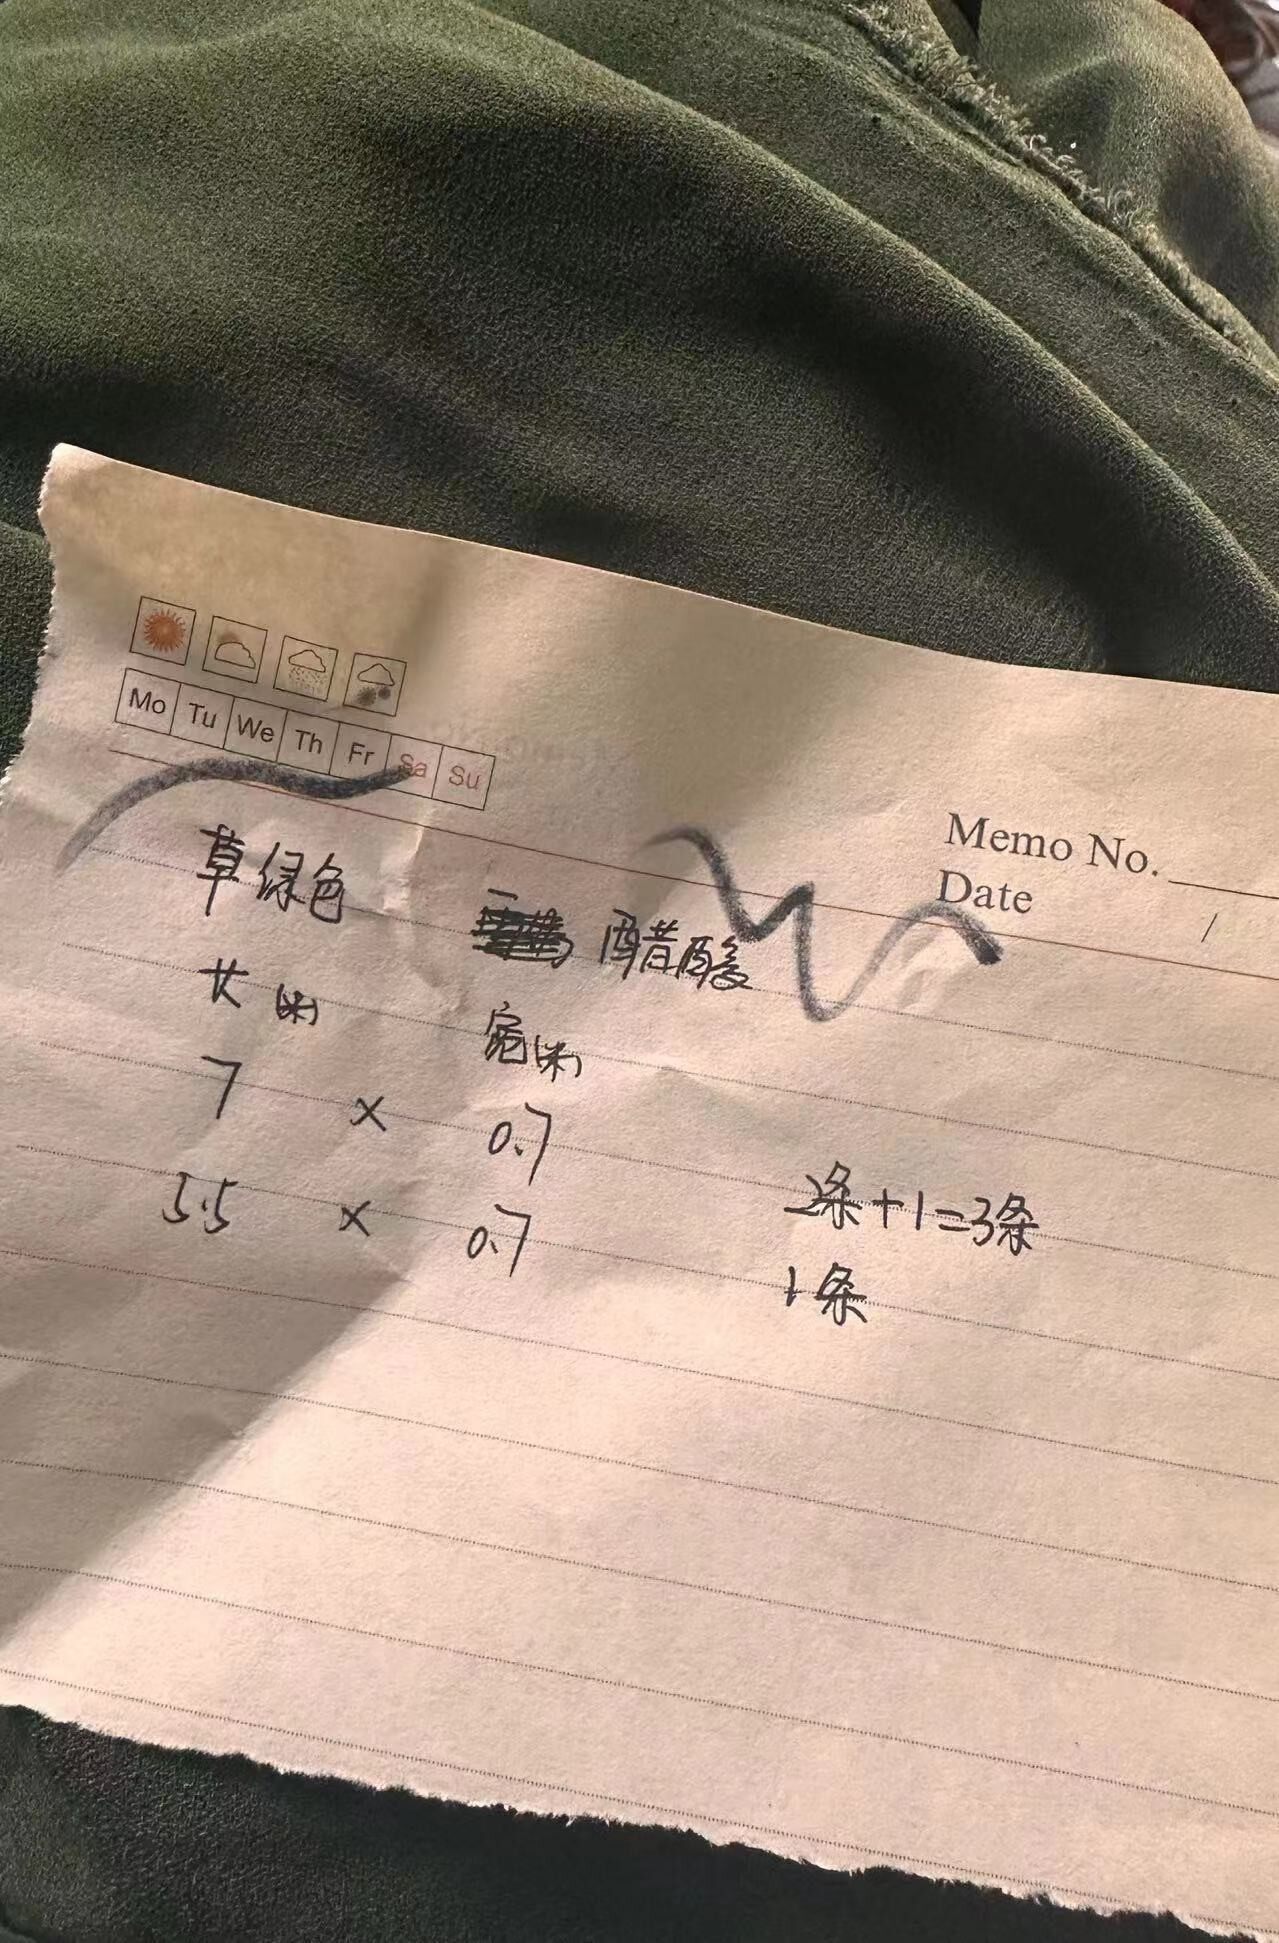 Mo Tu We Th Fr Sa Su
Memo No.
Date /
草绿色 醋酸
长(米) 宽(米)
7 × 0.7 2条+1=3条
5.5 × 0.7 1条